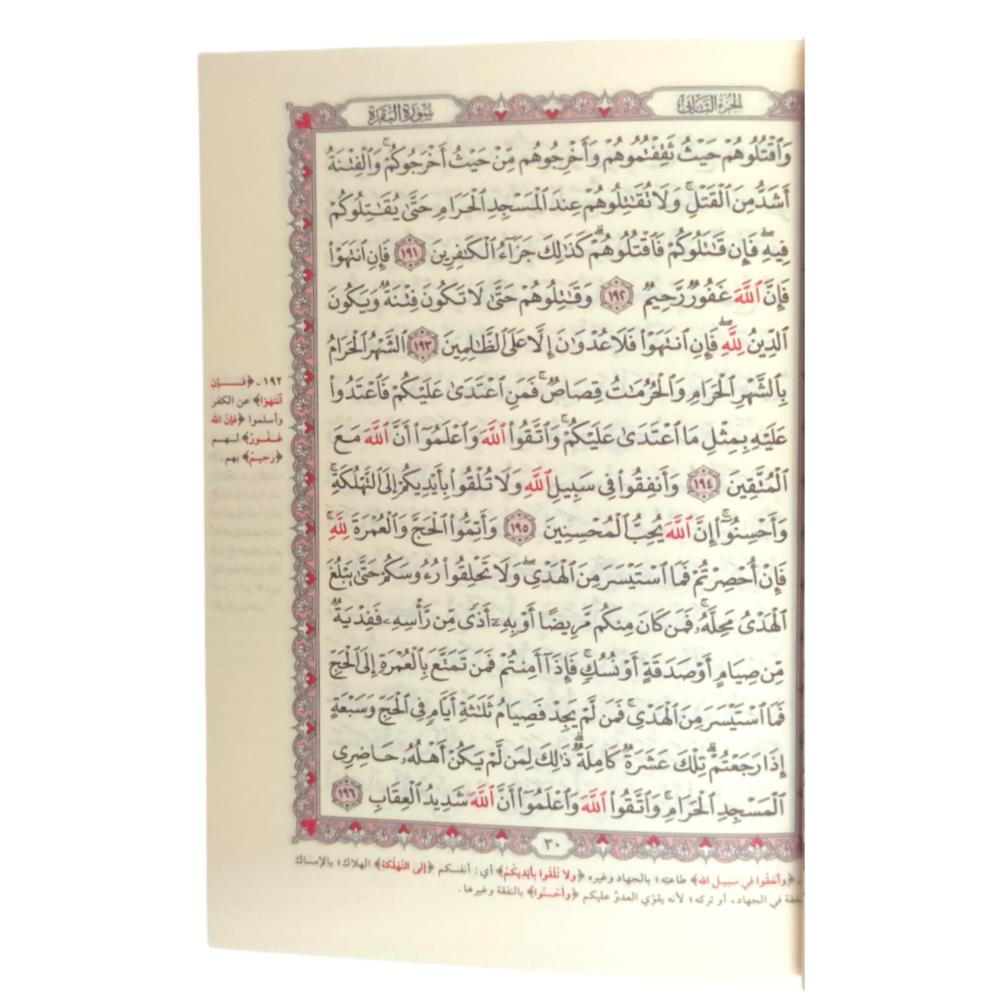 الجزء الثاني
سورة البقرة
وَٱقۡتُلُوهُمۡ حَيۡثُ ثَقِفۡتُمُوهُمۡ وَأَخۡرِجُوهُم مِّنۡ حَيۡثُ أَخۡرَجُوكُمۡۚ وَٱلۡفِتۡنَةُ
أَشَدُّ مِنَ ٱلۡقَتۡلِۚ وَلَا تُقَٰتِلُوهُمۡ عِندَ ٱلۡمَسۡجِدِ ٱلۡحَرَامِ حَتَّىٰ يُقَٰتِلُوكُمۡ
فِيهِۖ فَإِن قَٰتَلُوكُمۡ فَٱقۡتُلُوهُمۡۗ كَذَٰلِكَ جَزَآءُ ٱلۡكَٰفِرِينَ ١٩١ فَإِنِ ٱنتَهَوۡاْ
فَإِنَّ ٱللَّهَ غَفُورٞ رَّحِيمٞ ١٩٢ وَقَٰتِلُوهُمۡ حَتَّىٰ لَا تَكُونَ فِتۡنَةٞ وَيَكُونَ
ٱلدِّينُ لِلَّهِۖ فَإِنِ ٱنتَهَوۡاْ فَلَا عُدۡوَٰنَ إِلَّا عَلَى ٱلظَّٰلِمِينَ ١٩٣ ٱلشَّهۡرُ ٱلۡحَرَامُ
بِٱلشَّهۡرِ ٱلۡحَرَامِ وَٱلۡحُرُمَٰتُ قِصَاصٞۚ فَمَنِ ٱعۡتَدَىٰ عَلَيۡكُمۡ فَٱعۡتَدُواْ
عَلَيۡهِ بِمِثۡلِ مَا ٱعۡتَدَىٰ عَلَيۡكُمۡۚ وَٱتَّقُواْ ٱللَّهَ وَٱعۡلَمُوٓاْ أَنَّ ٱللَّهَ مَعَ
ٱلۡمُتَّقِينَ ١٩٤ وَأَنفِقُواْ فِي سَبِيلِ ٱللَّهِ وَلَا تُلۡقُواْ بِأَيۡدِيكُمۡ إِلَى ٱلتَّهۡلُكَةِ
وَأَحۡسِنُوٓاْۚ إِنَّ ٱللَّهَ يُحِبُّ ٱلۡمُحۡسِنِينَ ١٩٥ وَأَتِمُّواْ ٱلۡحَجَّ وَٱلۡعُمۡرَةَ لِلَّهِۚ
فَإِنۡ أُحۡصِرۡتُمۡ فَمَا ٱسۡتَيۡسَرَ مِنَ ٱلۡهَدۡيِۖ وَلَا تَحۡلِقُواْ رُءُوسَكُمۡ حَتَّىٰ يَبۡلُغَ
ٱلۡهَدۡيُ مَحِلَّهُۥۚ فَمَن كَانَ مِنكُم مَّرِيضًا أَوۡ بِهِۦٓ أَذٗى مِّن رَّأۡسِهِۦ فَفِدۡيَةٞ
مِّن صِيَامٍ أَوۡ صَدَقَةٍ أَوۡ نُسُكٖۚ فَإِذَآ أَمِنتُمۡ فَمَن تَمَتَّعَ بِٱلۡعُمۡرَةِ إِلَى ٱلۡحَجِّ
فَمَا ٱسۡتَيۡسَرَ مِنَ ٱلۡهَدۡيِۚ فَمَن لَّمۡ يَجِدۡ فَصِيَامُ ثَلَٰثَةِ أَيَّامٖ فِي ٱلۡحَجِّ وَسَبۡعَةٍ
إِذَا رَجَعۡتُمۡۗ تِلۡكَ عَشَرَةٞ كَامِلَةٞۗ ذَٰلِكَ لِمَن لَّمۡ يَكُنۡ أَهۡلُهُۥ حَاضِرِي
ٱلۡمَسۡجِدِ ٱلۡحَرَامِۚ وَٱتَّقُواْ ٱللَّهَ وَٱعۡلَمُوٓاْ أَنَّ ٱللَّهَ شَدِيدُ ٱلۡعِقَابِ ١٩٦
١٩٢ـ ﴿فَإِن
انتَهَوْا﴾ عن الكفر
وأسلموا ﴿فإنَّ الله
غفورٌ﴾ لهم
﴿رَحِيمٌ﴾ بهم.
٣٠
﴿وأنفقوا في سبيل الله﴾ طاعته؛ بالجهاد وغيره ﴿ولا تُلْقُوا بأيْدِيكُمْ﴾ أي: أنفسكم ﴿إلى التَّهْلُكَة﴾ الهلاك؛ بالإمساك
في الجهاد، أو تركه؛ لأنه يقوّي العدوَّ عليكم ﴿وأَحْسِنُوا﴾ بالنفقة وغيرها.